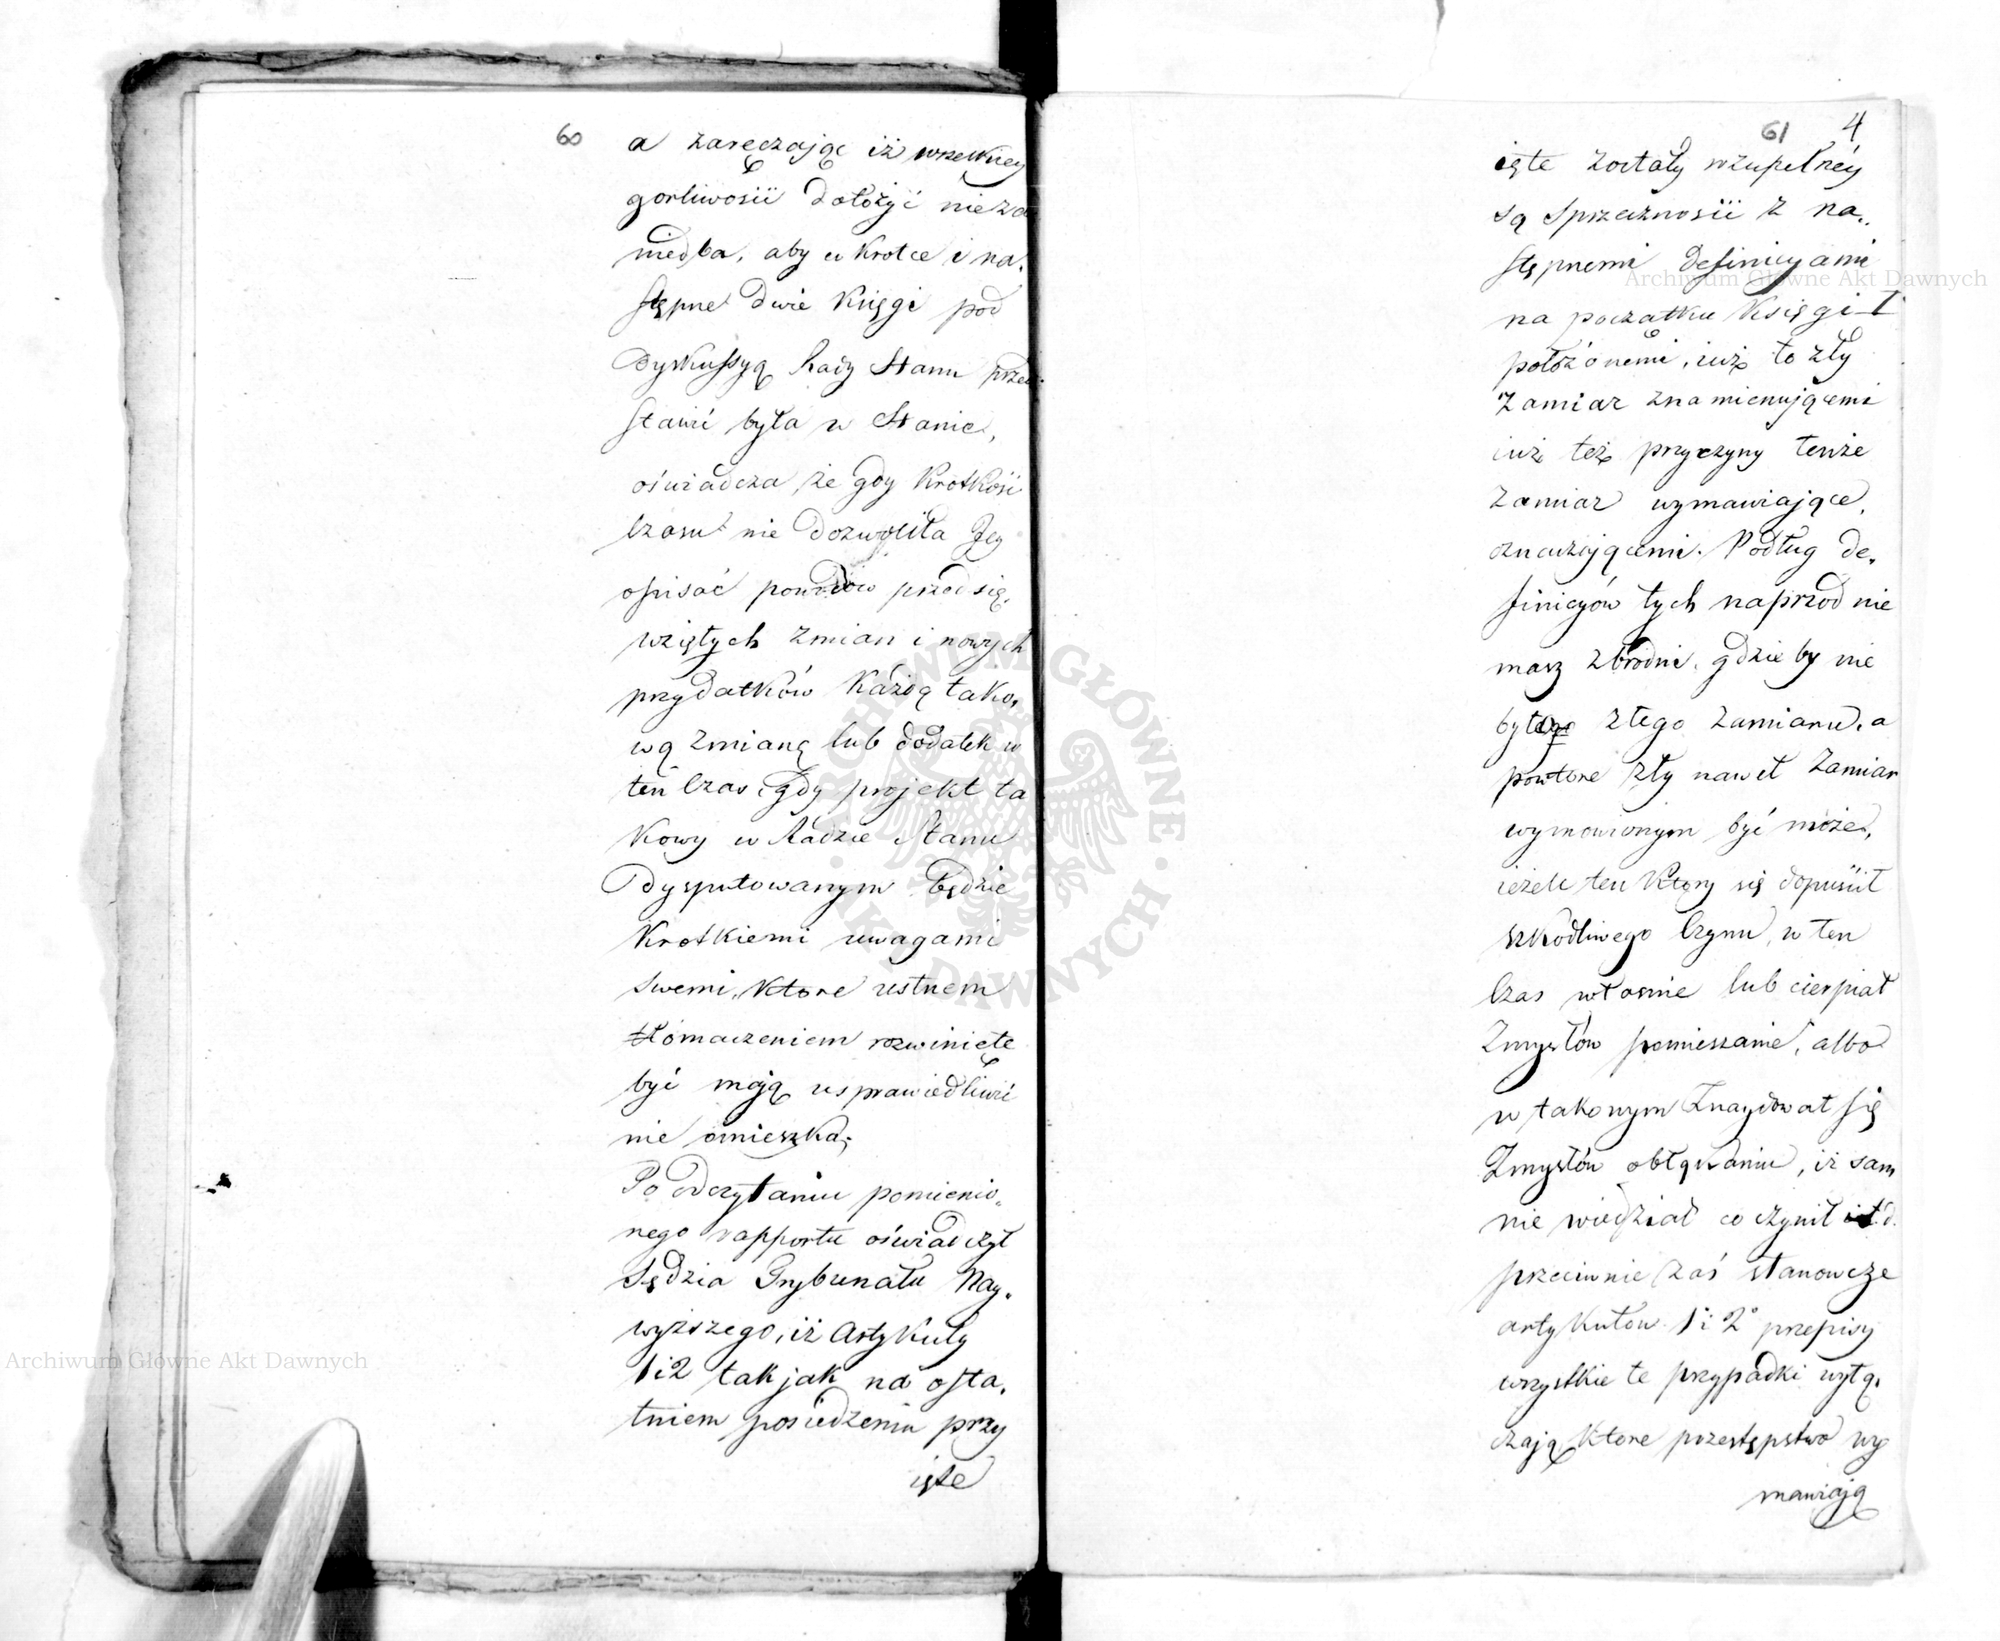 60
a zaręczając iż wszelkiey
gorliwości dołożyć nieza
niedba, aby w krotce i na.
stępne dwie Księgi pod
Dyskussyą Rady Stanu przed
stawić była w Stanie,
oświadcza, że gdy krotkość
Czasu nie dozwoliła Jey
opisać powodów przedsię.
wziętych zmian i nowych
przydatków każdą tako.
wą zmianę lub dodatek w
ten Czas, gdy projekt ta
kowy w Radzie Stanu
Dysputowanym będzie
krotkiemi uwagami
swemi, ktore ustnem
tłomaczeniem rozwinięte
być mają usprawiedliwić
nie omieszka;
Po odczytaniu pomienio.
nego rapportu oświadczył
Sędzia Trybunału Nay.
wyższego, iż Artykuły
1 i 2 tak jak na osta.
tniem posiedzeniu przy
ięte
61 4
ięte zostały w zupełnéy
są Sprzeczności z na..
stępnemi definicyami
na początku Księgi I
położonemi, iuż to zły
zamiar znamienującemi
iuż też przyczyny tenże
zamiar wymawiające,
oznaczającemi. Podług de.
finicyów tych naprzod nie
masz zbrodni, gdzieby nie
było złego zamiaru, a
powtore zły nawet zamiar
wymowionym być może,
ieżeli ten ktory się dopuścił
szkodliwego Czynu, w ten
Czas własnie lub cierpiał
Zmysłów pomieszanie, albo
w takowym znaydował się
Zmysłów obłąkaniu, iż sam
nie wiedział co czynił i t. d.
przeciwnie zaś stanowcze
artykułow 1 i 2° przepisy
wszystkie te przypadki wyłą.
czają ktore przestępstwo wy
mawiają
Archiwum Główne Akt Dawnych
Archiwum Główne Akt Dawnych
ARCHIWUM GŁÓWNE AKT DAWNYCH